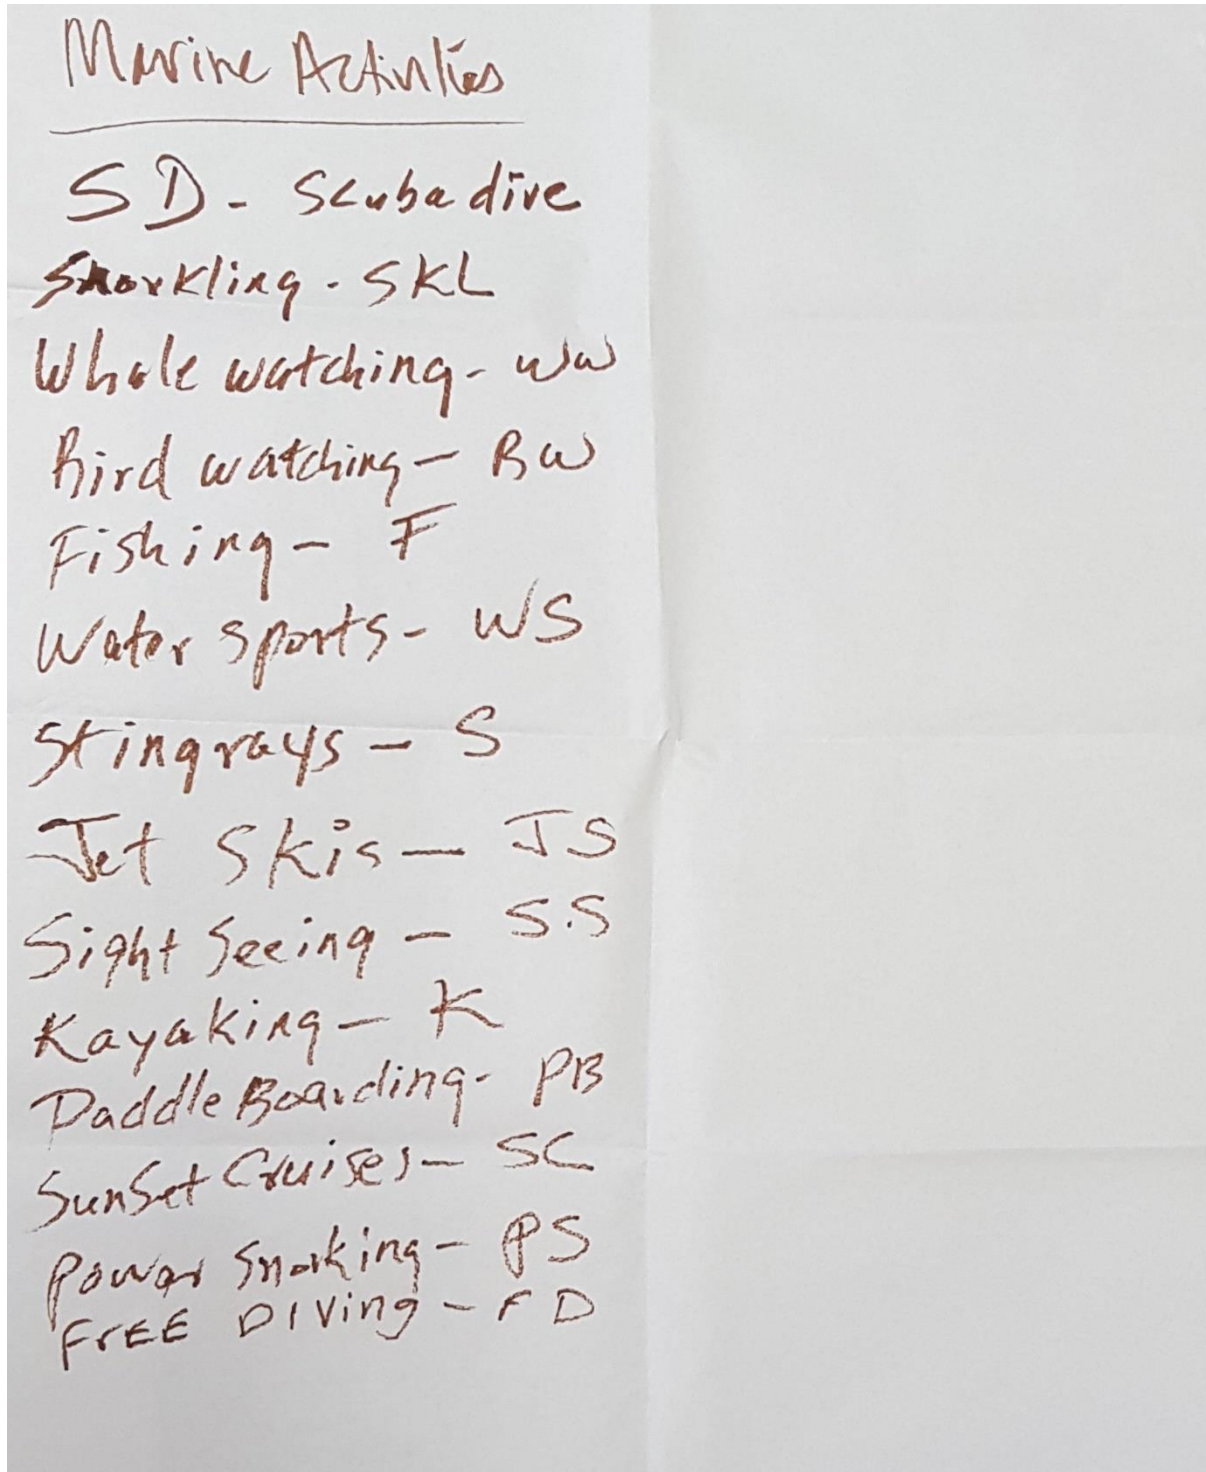 Marine Activities
SD - Scuba dive
Snorkling - SKL
Whale watching - WW
Bird watching - BW
Fishing - F
Water sports - WS
Stingrays - S
Jet Skis - JS
Sight Seeing - S.S
Kayaking - K
Paddle Boarding - PB
SunSet Cruises - SC
Power Snorking - PS
FrEE DIVing - FD